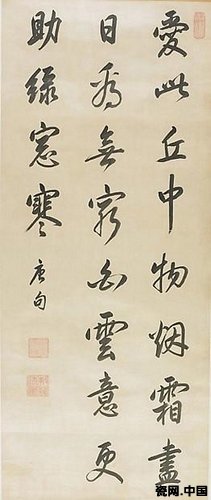 愛此丘中物烟霜盡
日看無窮白雲意更
助緑窓寒
唐句
瓷网.中国